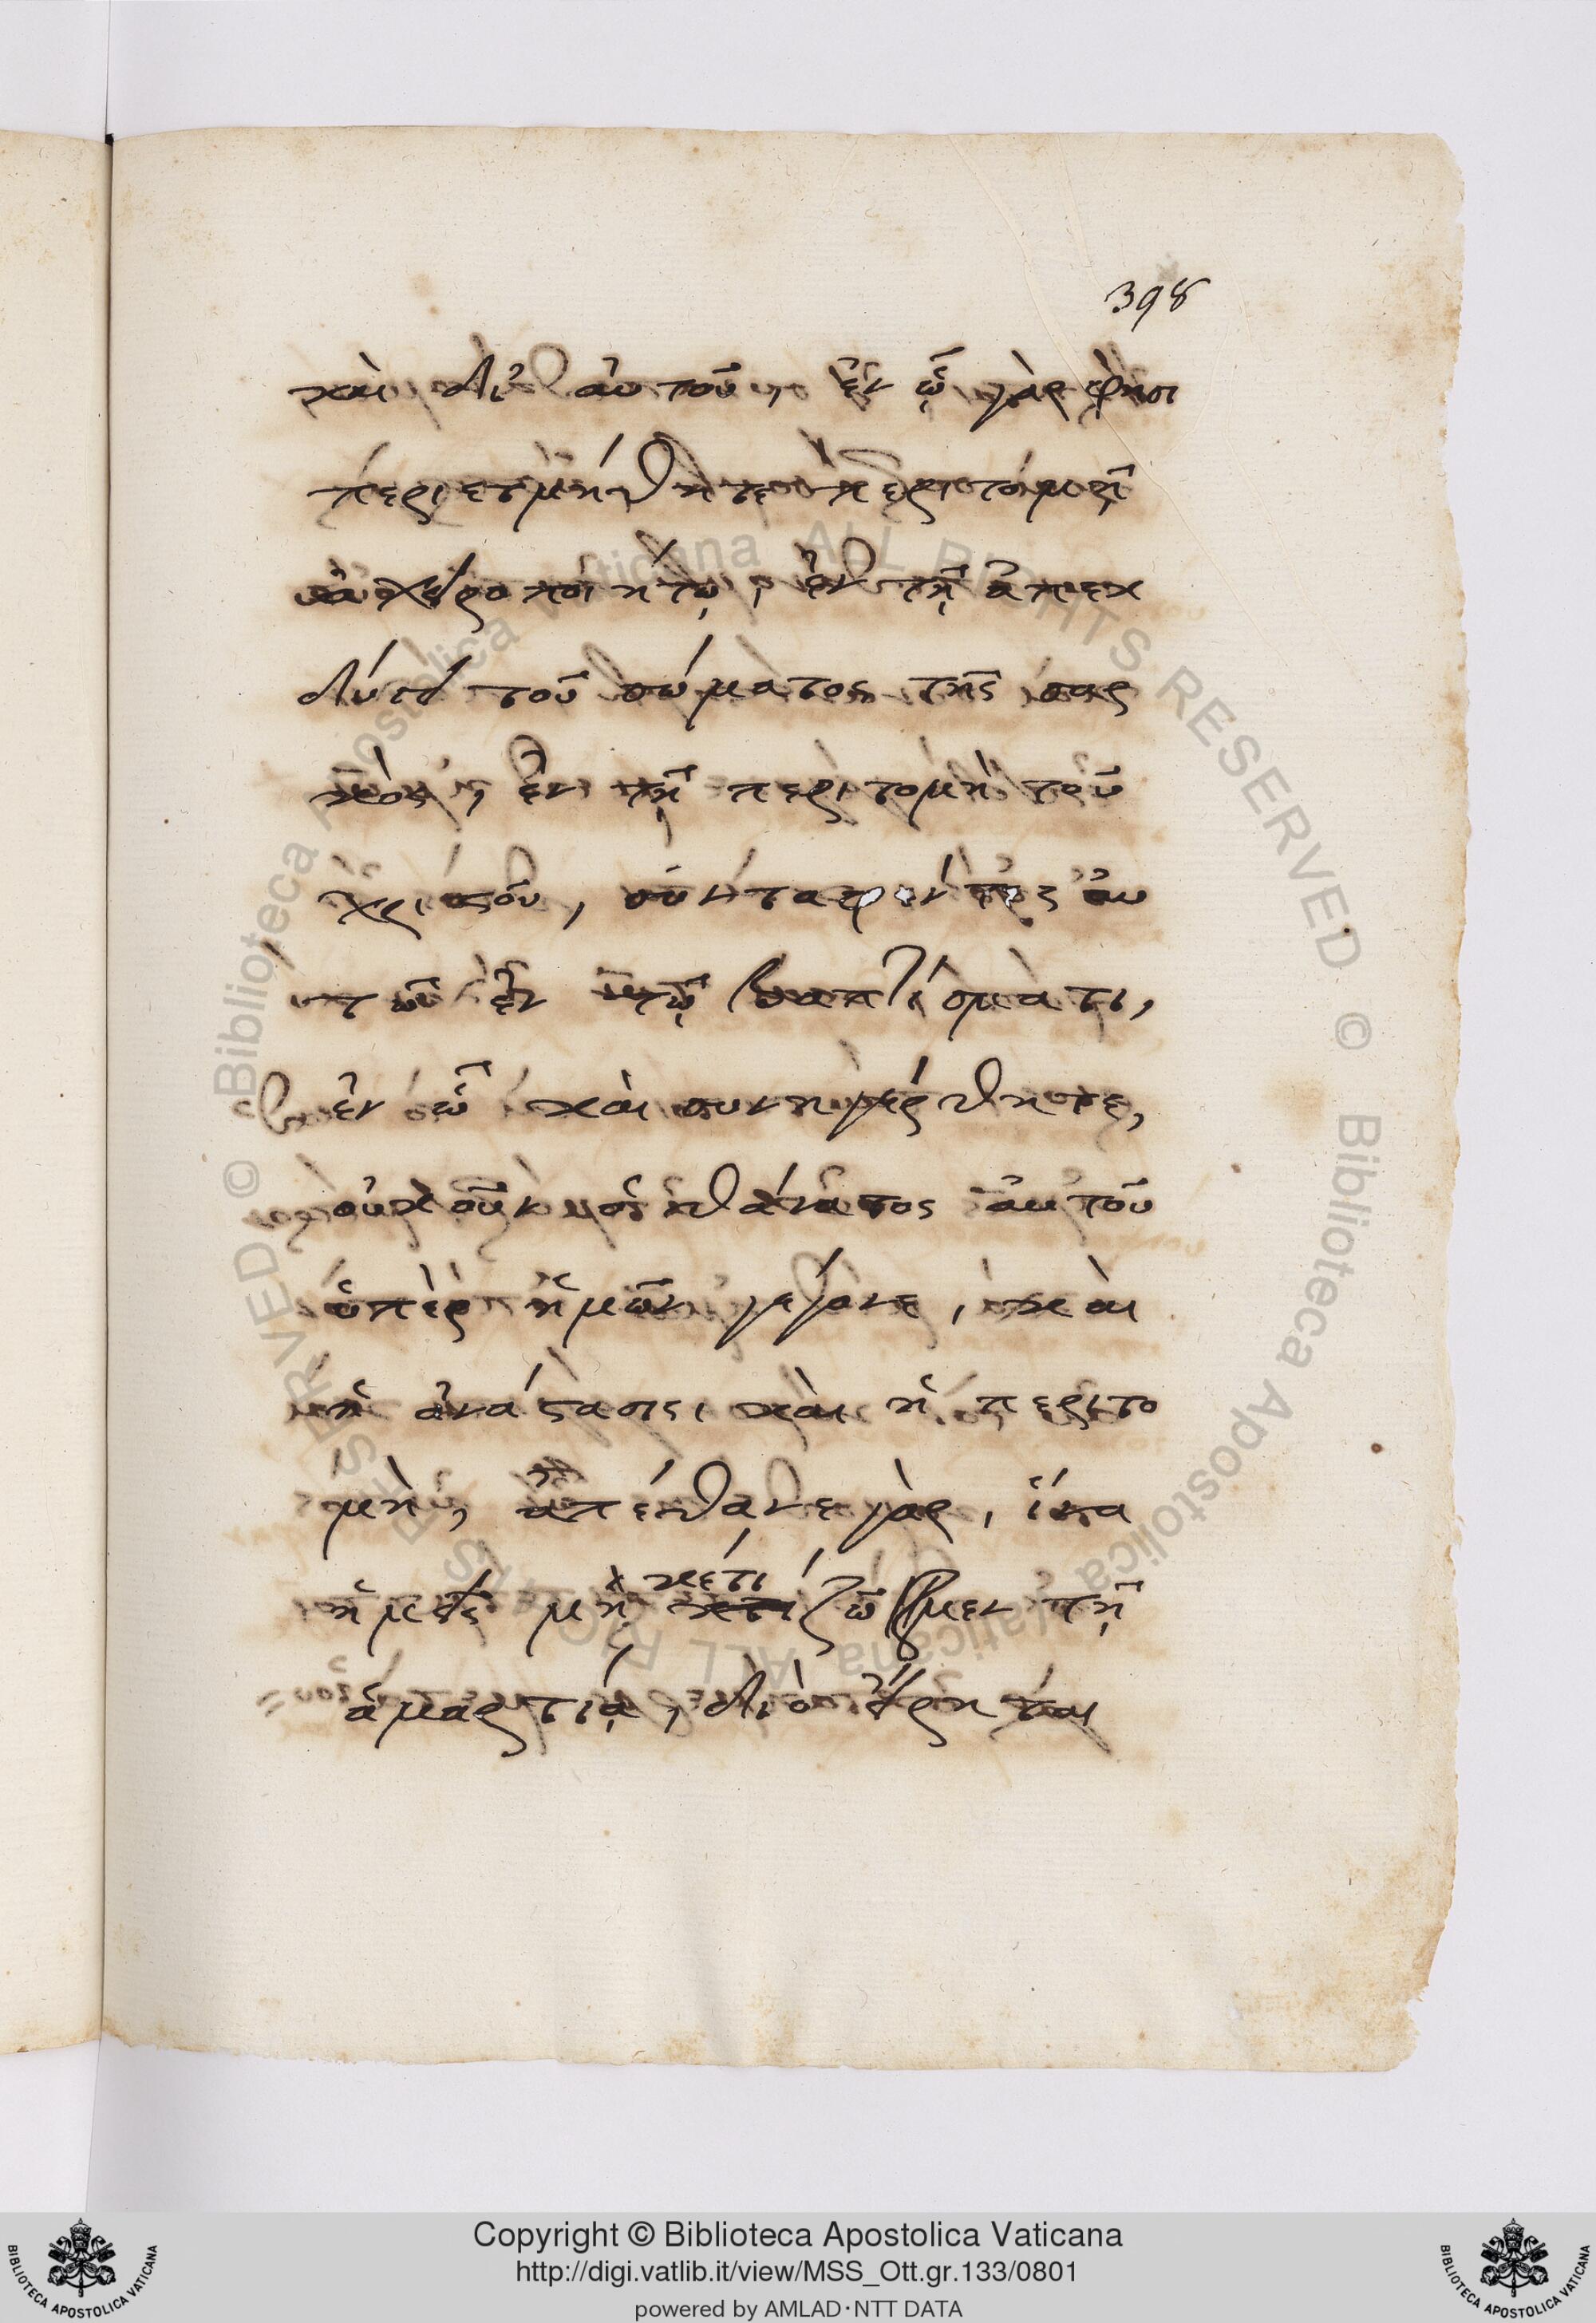 398
καὶ δι' αὐτοῦ, ἐν ᾧ γὰρ φησι
περιετμήθητε περιτομῇ
ἀχειροποιήτῳ, ἐν τῇ ἀπεκ
δύσει τοῦ σώματος τῆς σαρ
κὸς, ἐν τῇ περιτομῇ τοῦ
χριστοῦ, συνταφέντες αὐ
τῷ ἐν τῷ βαπτίσματι,
ἐν ᾧ καὶ συνηγέρθητε,
οὐκοῦν ὁ θάνατος αὐτοῦ
ὑπὲρ ἡμῶν γέγονε, καὶ
ἡ ἀνάστασις, καὶ ἡ περιτο
μὴ, ἀπέθανε γὰρ, ἵνα
ἡμεῖς μὴ κέτι ζῶμεν τῇ
ἁμαρτίᾳ, διὸ εἴρηται
Copyright © Biblioteca Apostolica Vaticana
http://digi.vatlib.it/view/MSS_Ott.gr.133/0801
powered by AMLAD·NTT DATA
BIBLIOTECA APOSTOLICA VATICANA
BIBLIOTECA APOSTOLICA VATICANA
© Biblioteca Apostolica Vaticana ALL RIGHTS RESERVED
© Biblioteca Apostolica Vaticana ALL RIGHTS RESERVED